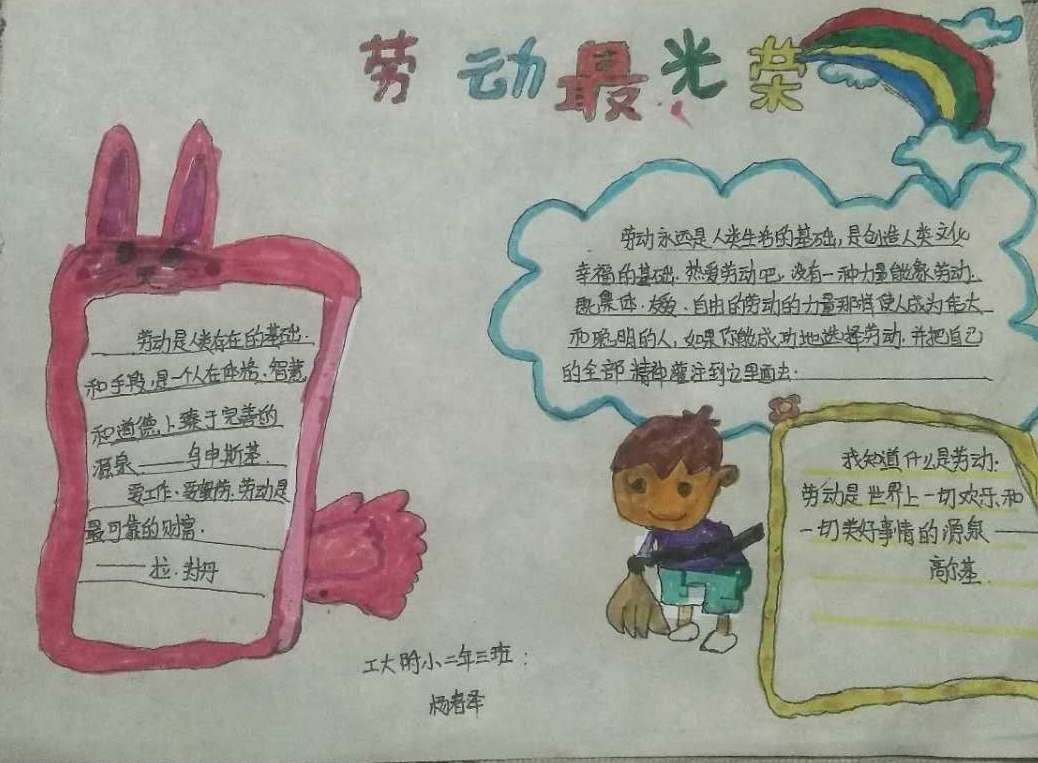 劳动最光荣
劳动是人类存在的基础.
和手段,是一个人在体格、智慧
和道德上臻于完善的
源泉——乌申斯基.
爱工作、爱勤劳.劳动是
最可靠的财富.
——拉·封丹
劳动永远是人类生活的基础,是创造人类文化
幸福的基础.热爱劳动吧,没有一种力量能象劳动.
既集体·友爱、自由的劳动的力量那样使人成为伟大
和聪明的人,如果你能成功地选择劳动.并把自己
的全部精神灌注到它里面去.
我知道什么是劳动.
劳动是世界上一切欢乐和
一切美好事情的源泉——
高尔基.
工大附小二年三班: